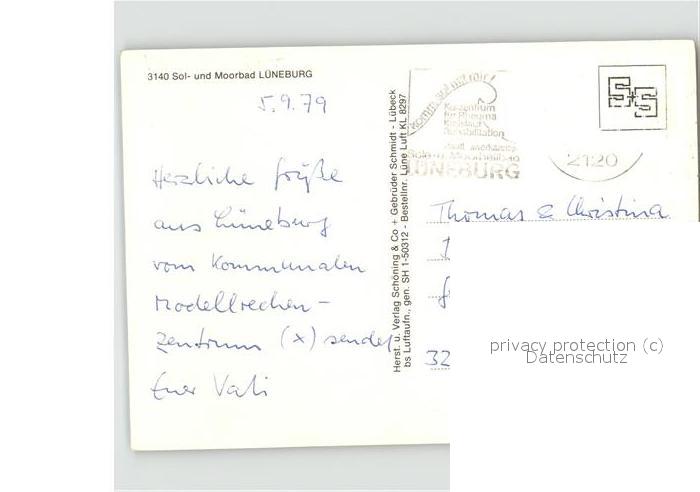 3140 Sol- und Moorbad LÜNEBURG
5.9.79
Herzliche Grüße
aus Lüneburg
vom Kommunalen
Modellrechen-
zentrum (x) sendet
Euer Vati
Herst. u. Verlag Schöning & Co + Gebrüder Schmidt - Lübeck
bs Luftaufn., gen. SH 1-50312 - Bestellnr. Lüne Luft KL 8297
komm' sol mit mir!
Kurzentrum
für Rheuma
Rehabilitation
LÜNEBURG
S+S
2120
Thomas & Christina
32
privacy protection (c)
Datenschutz